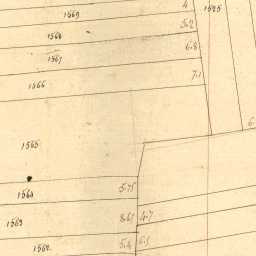 1569 4 1525
1568 5.2
1567 6.8
1566 7.1
6
1565
1564 5.75
1563 8.65 4.7
1562 5.4 6.5